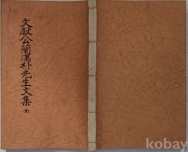 文獻公蘭溪朴先生文集 全
kobay